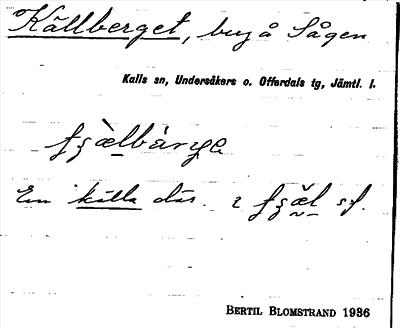 Källberget, berg å Sågen
Kalls sn, Undersåkers o. Offerdals tg, Jämtl. l.
En källa där.
BERTIL BLOMSTRAND 1936